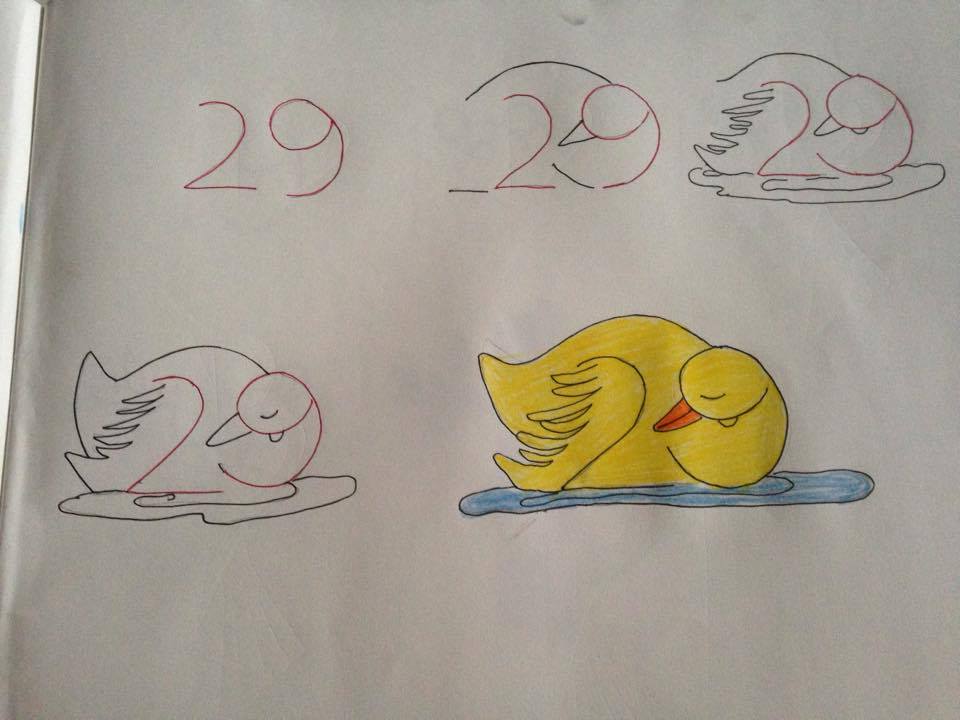 29 29 29
29